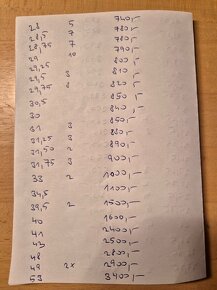 28 5 740,-
28,5 7 780,-
28,75 7 780,-
29 10 790,-
29,25 800,-
29,5 3 810,-
29,75 820,-
30,5 850,-
30 840,-
31 3 850,-
31,25 3 880,-
31,50 2 890,-
31,75 3 900,-
33 2 1000,-
34,5 1100,-
39,5 2 1500,-
40 1600,-
41 2400,-
43 2500,-
48 2800,-
49 2x 2900,-
53 3400,-